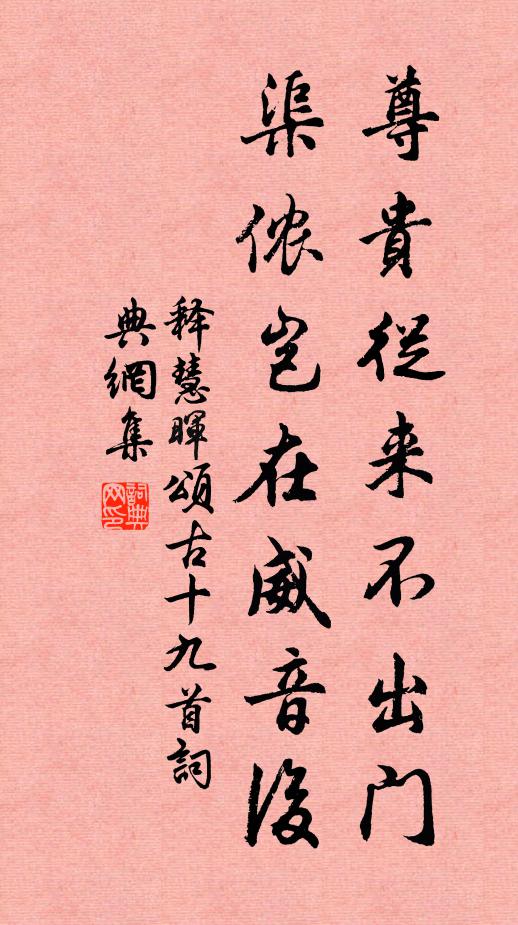 尊貴從来不出门
渠侬岂在威音後
释慧暉頌古十九首詞
典網集
詞典网印